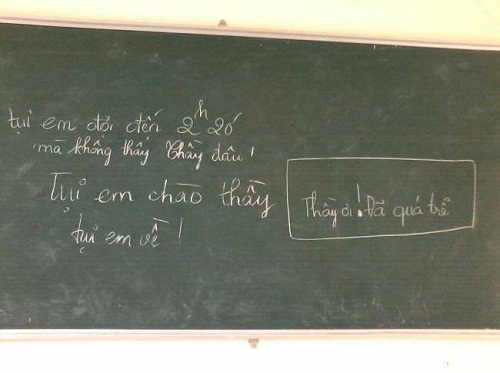 tụi em đợi đến 2h 20'
mà không thấy Thầy đâu!
Tụi em chào thầy
tụi em về!
Thầy ơi! Đã quá trễ